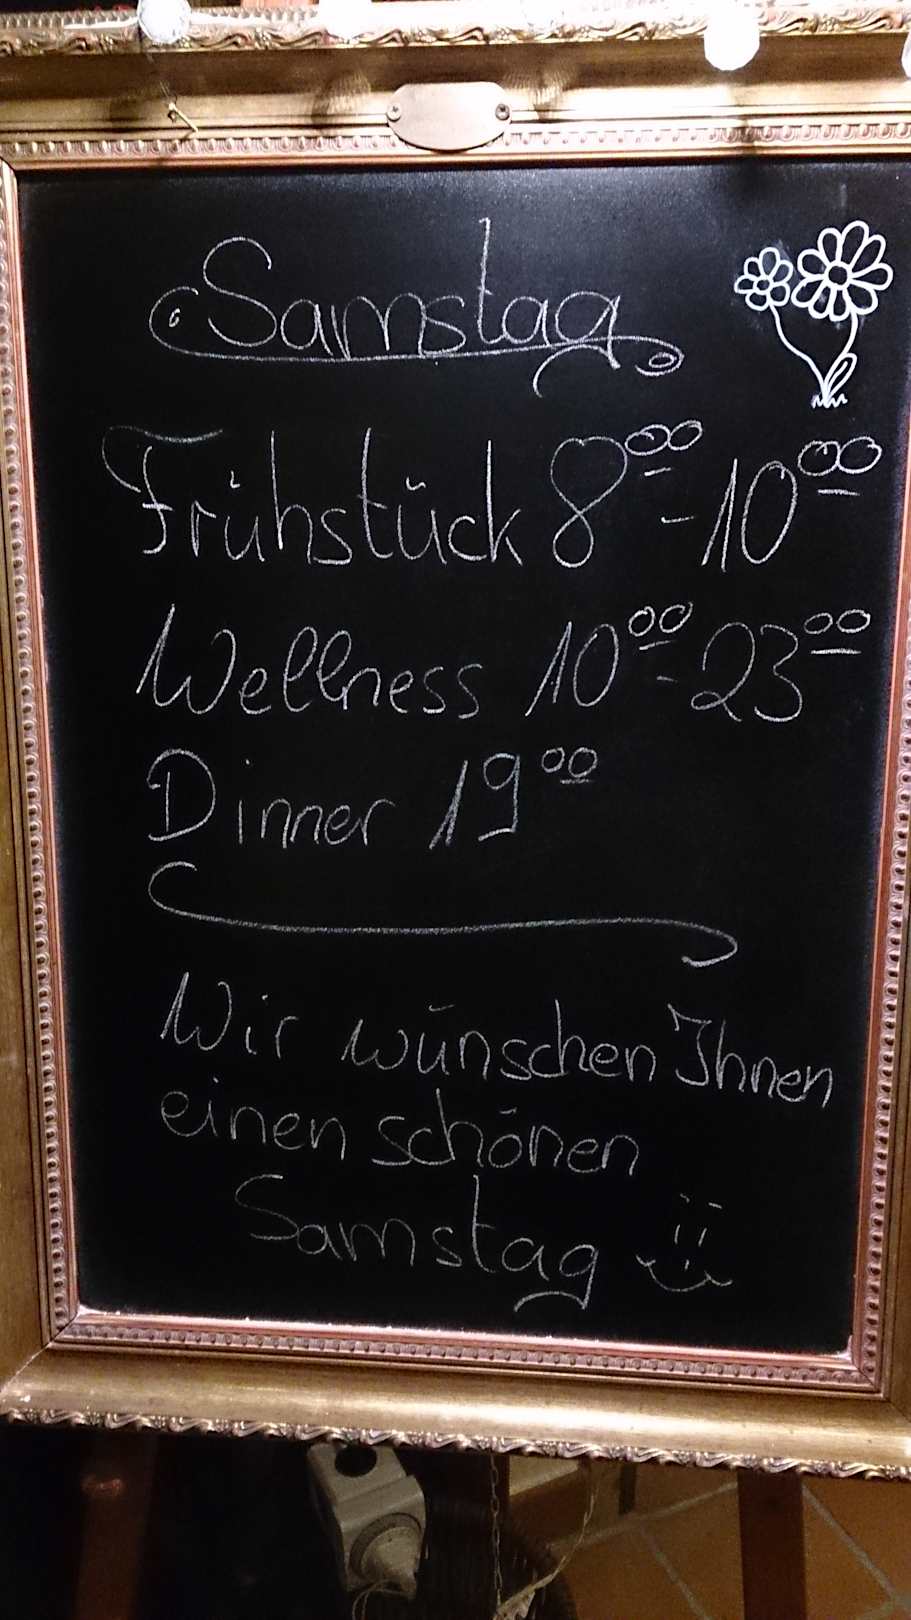 Samstag
Frühstück 8⁰⁰ - 10⁰⁰
Wellness 10⁰⁰ - 23⁰⁰
Dinner 19⁰⁰
Wir wünschen Ihnen
einen schönen
Samstag